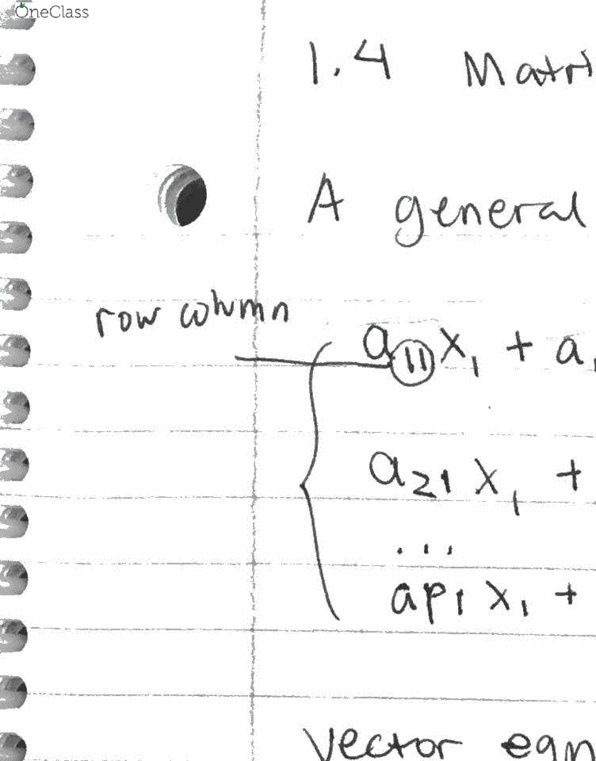 OneClass
1.4 Matri
A general
row column
a11x1 + a1
a21x1 +
...
ap1x1 +
vector eqn